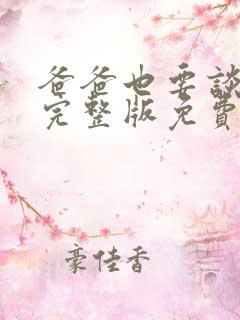 爸爸也要談
完整版免費
豪佳香